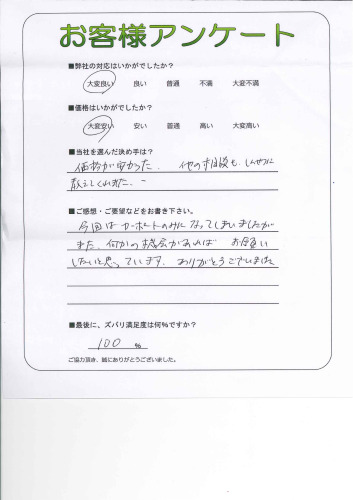 お客様アンケート
■弊社の対応はいかがでしたか？
大変良い 良い 普通 不満 大変不満
■価格はいかがでしたか？
大変安い 安い 普通 高い 大変高い
■当社を選んだ決め手は？
価格が安かった、 他の相談も しんせつに
教えてくれた、
■ご感想・ご要望などをお書き下さい。
今回は カーポートのみに なってしまいましたが
また、何かの機会があれば お願い
したいと思っています、 ありがとうございました
■最後に、ズバリ満足度は何％ですか？
100 %
ご協力頂き、誠にありがとうございました。